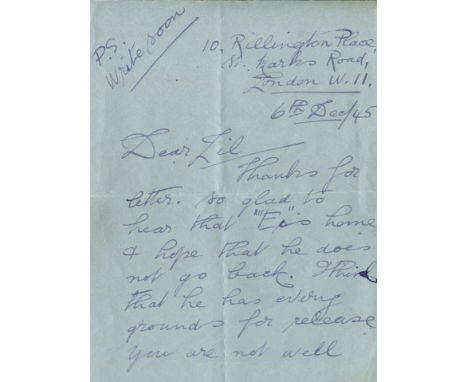 P.S.
Write soon
10, Rillington Place,
St. Marks Road,
London W. 11.
6th Dec/45
Dear Lil
Thanks for
letter. so glad to
hear that "Eis home
& hope that he does
not go back. I think
that he has every
grounds for release
You are not well